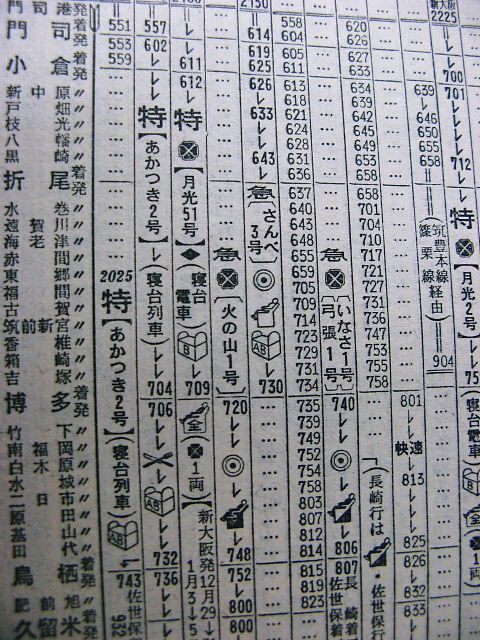 門司港 発
門司 着 発
小倉 着 発
新中原 〃
戸畑 〃
枝光 〃
八幡 〃
黒崎 〃
折尾 着 発
水巻 〃
遠賀川 〃
海老津 〃
赤間 〃
東郷 〃
福間 〃
古賀 〃
筑前新宮 〃
香椎 〃
箱崎 〃
吉塚 〃
博多 着 発
竹下 〃
南福岡 〃
白木原 〃
水城 〃
二日市 〃
原田 〃
基山 〃
田代 〃
鳥栖 着 発
肥前旭 〃
久留米 着 発
551
553
559
…
2025
特
【あかつき2号】
(寝台列車)
743
佐世保着
932
557
602
レ
特
【あかつき2号】
(寝台列車)
704
706
レ
732
736
佐世保
611
612
特
【月光51号】
寝台電車
B
709
全
1両
【新大阪発12月29→
1月3→5
急
火の山1号
720
レ
748
752
レ
800
800
2150
614
619
625
626
レ
633
643
急
【さんべ3号】
AB
730
558
604
605
611
613
618
621
624
628
631
636
637
640
644
648
655
659
705
709
714
723
729
731
734
735
739
749
752
754
758
803
807
812
814
815
819
823
急
いなさ1号
弓張1号
740
レ
806
807
長崎着
佐世保着
620
626
627
633
634
639
642
645
649
653
658
658
701
704
710
717
721
727
731
736
747
753
755
758
(長崎行は
・佐世保行
639
レ
646
650
655
658
(筑豊本線
篠栗線
経由)
801
快速
813
825
826
832
833
904
新大阪
2225
700
701
712
特
【月光2号】
寝台電車
B
全